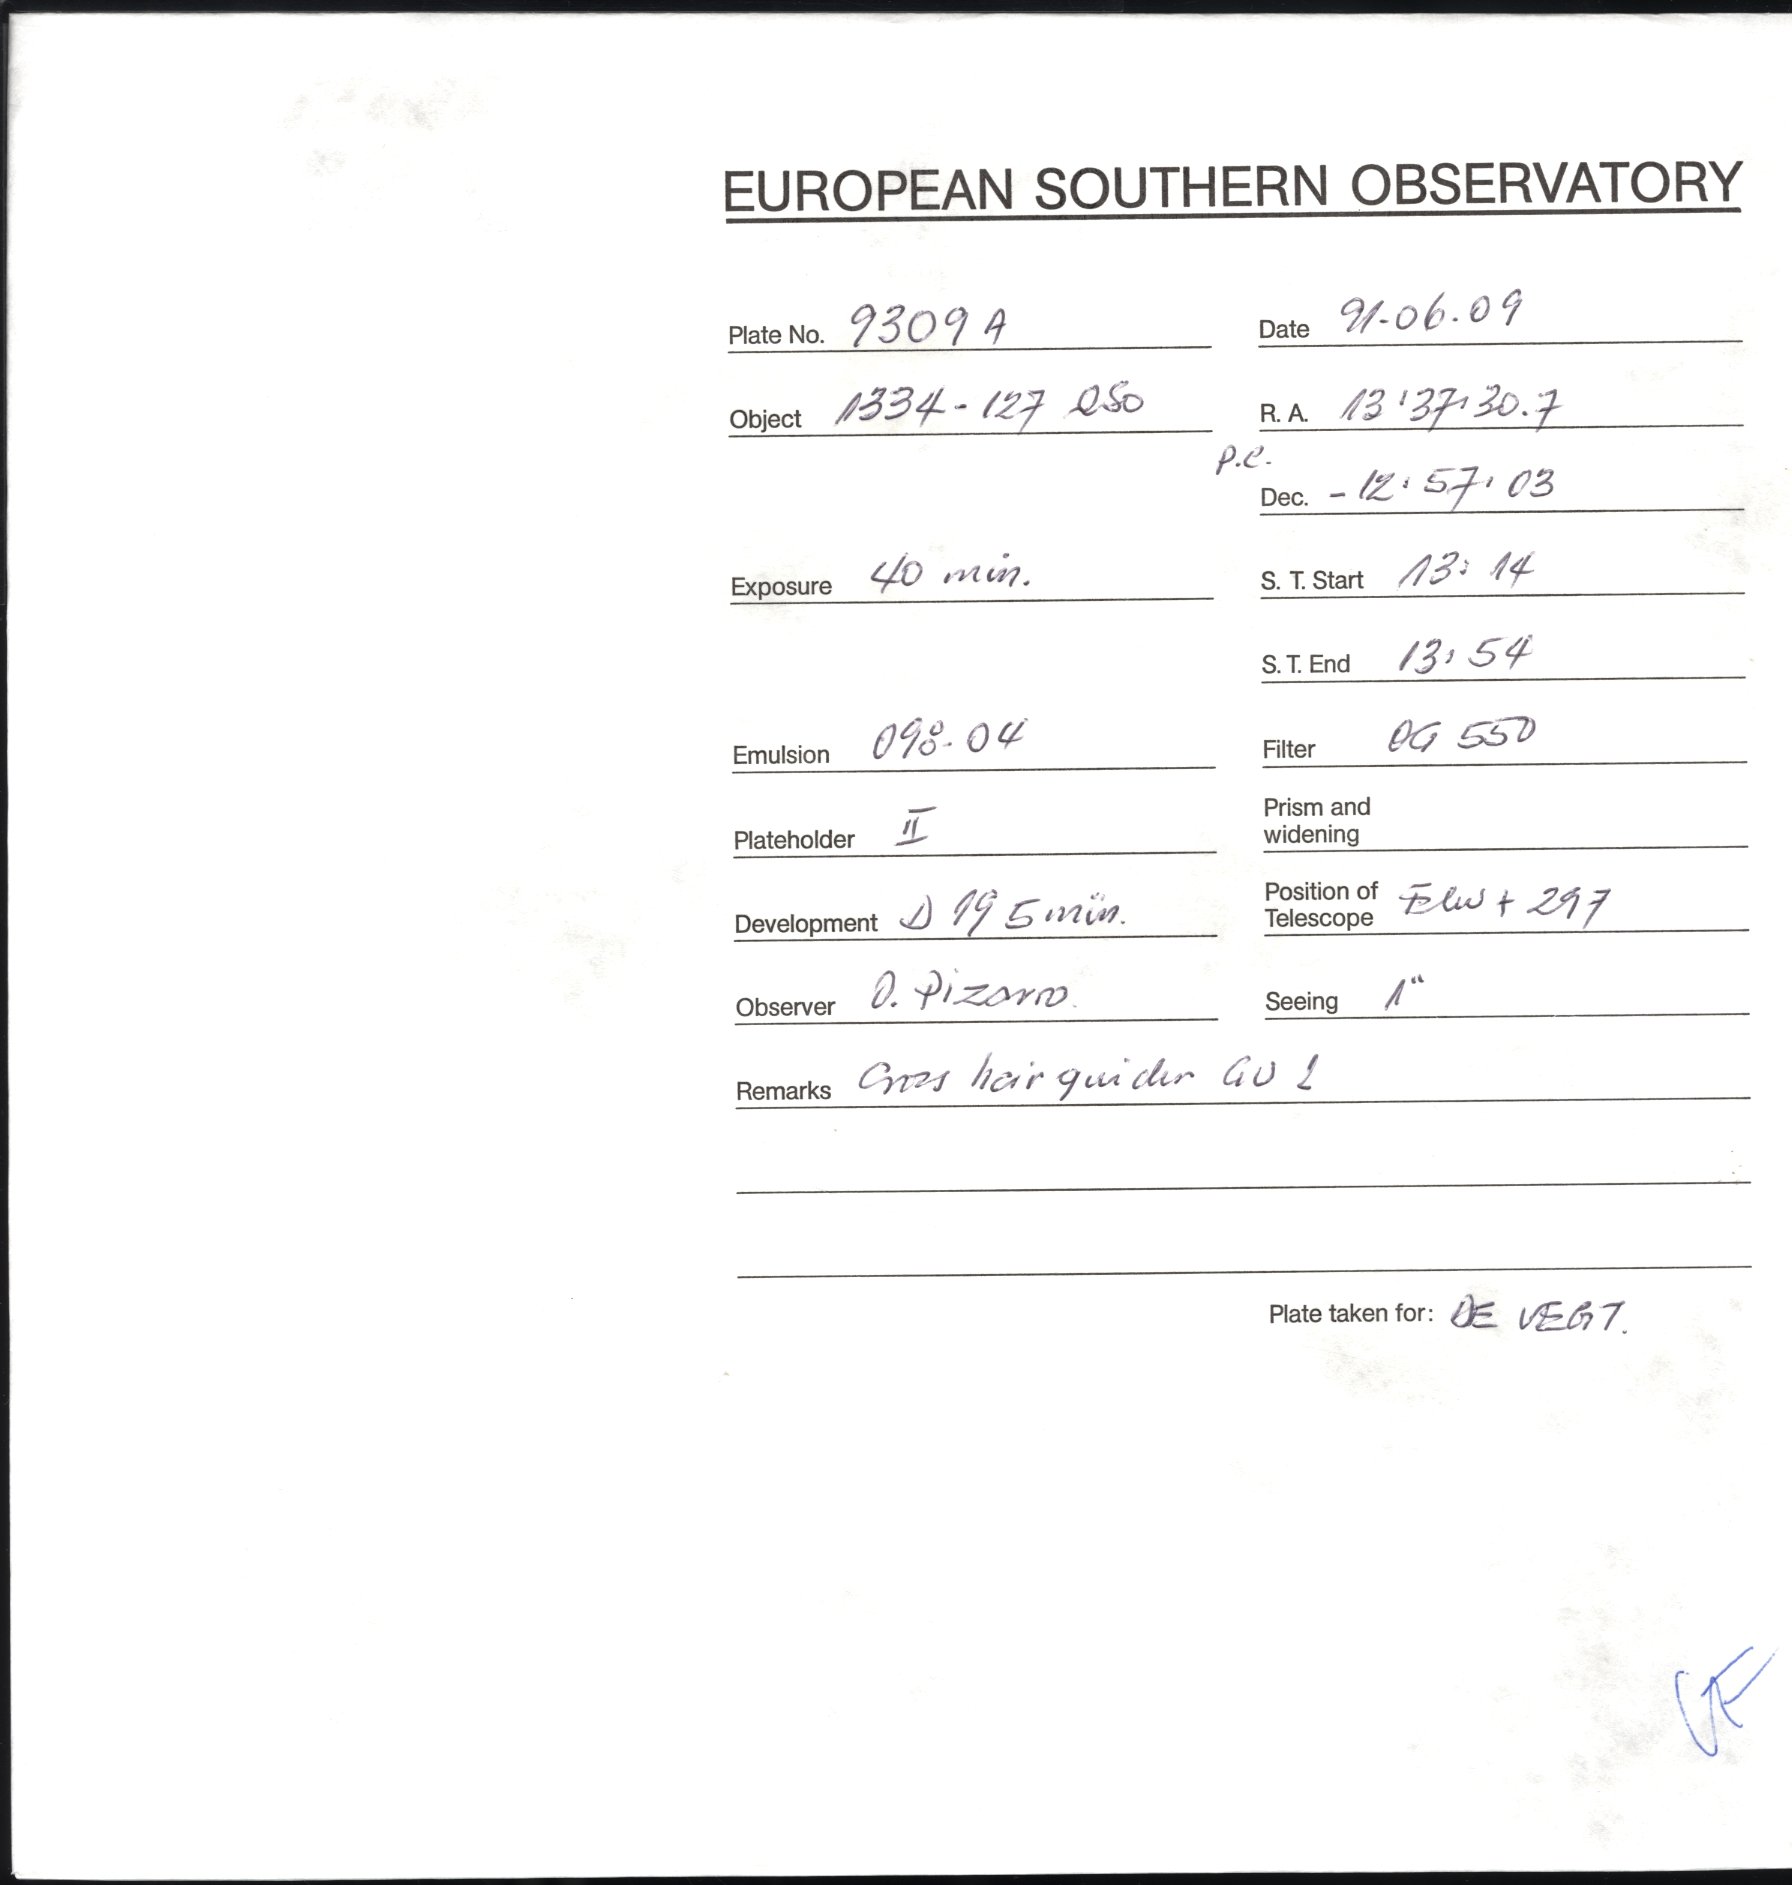 EUROPEAN SOUTHERN OBSERVATORY
Plate No. 9309 A
Date 91-06-09
Object 1334-127 QSO
R. A. 13:37:30.7
p.e.
Dec. -12:57:03
Exposure 40 min.
S. T. Start 13:14
S. T. End 13:54
Emulsion 098-04
Filter OG 550
Plateholder II
Prism and
widening
Development D 19 5 min.
Position of
Telescope + 297
Observer O. Pizarro.
Seeing 1"
Remarks Cross hair guider GU 2
Plate taken for: DE VEGT.